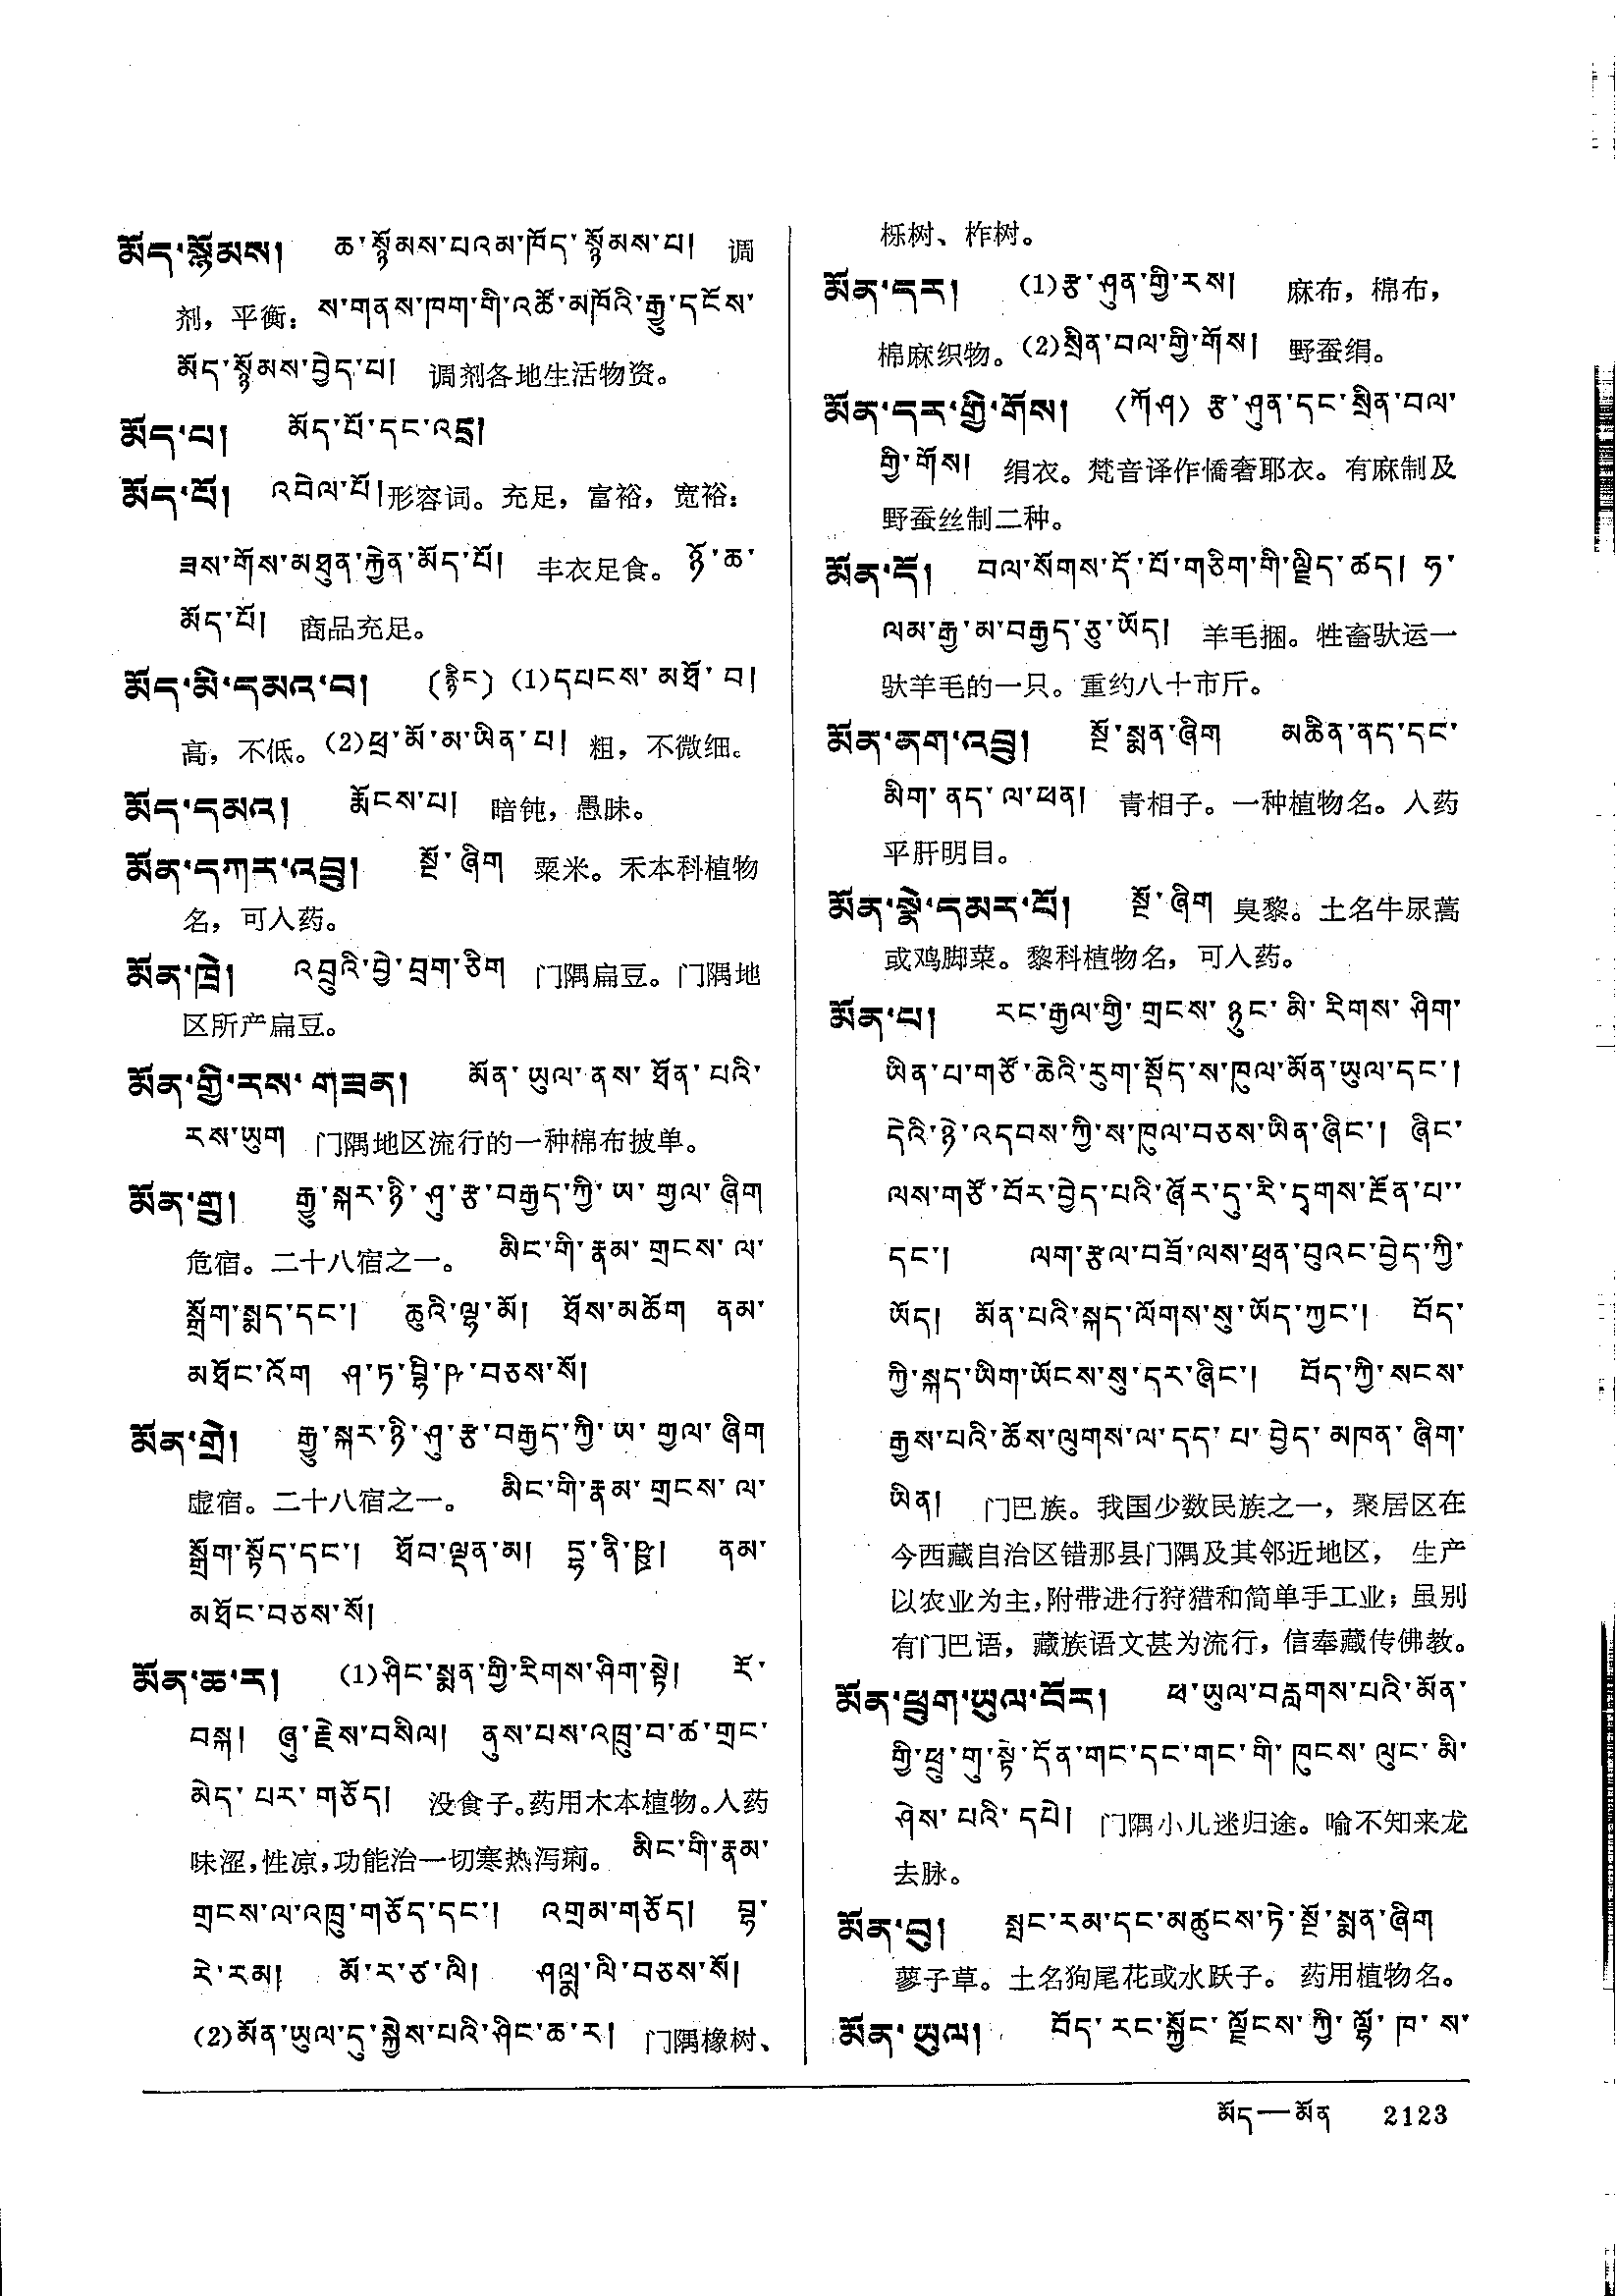 མོད་སྙོམས། ཆ་སྙོམས་པའམ་ཁོད་སྙོམས་པ། 调
剂，平衡：ས་གནས་ཁག་གི་འཚོ་མཁོའི་རྒྱུ་དངོས་
མོད་སྙོམས་བྱེད་པ། 调剂各地生活物资。
མོད་པ། མོད་པོ་དང་འདྲ།
མོད་པོ། འབེལ་པོ། 形容词。充足，富裕，宽裕：
ཟས་གོས་མཐུན་རྐྱེན་མོད་པོ། 丰衣足食。ཉོ་ཆ་
མོད་པོ། 商品充足。
མོད་མི་དམའ་བ། (རྙིང) (1)དཔངས་མཐོ་བ།
高，不低。(2)ཕྲ་མོ་མ་ཡིན་པ། 粗，不微细。
མོད་དམའ། རྨོངས་པ། 暗钝，愚昧。
མོན་དཀར་འབྲུ། སྔོ་ཞིག 粟米。禾本科植物
名，可入药。
མོན་ཁྲེ། འབྲུའི་བྱེ་བྲག་ཅིག 门隅扁豆。门隅地
区所产扁豆。
མོན་གྱི་རས་གཟན། མོན་ཡུལ་ནས་ཐོན་པའི་
རས་ཡུག 门隅地区流行的一种棉布披单。
མོན་གྲུ། རྒྱུ་སྐར་ཉི་ཤུ་རྩ་བརྒྱད་ཀྱི་ཡ་གྱལ་ཞིག
危宿。二十八宿之一。 མིང་གི་རྣམ་གྲངས་ལ་
སྒྲོག་སྨད་དང་། ཆུའི་ལྷ་མོ། ཐོས་མཆོག ནམ་
མཐོང་འོག ཤ་ཏ་བྷི་ཥ་བཅས་སོ།
མོན་གྲེ། རྒྱུ་སྐར་ཉི་ཤུ་རྩ་བརྒྱད་ཀྱི་ཡ་གྱལ་ཞིག
虚宿。二十八宿之一。 མིང་གི་རྣམ་གྲངས་ལ་
སྒྲོག་སྟོད་དང་། ཐོབ་ལྡན་མ། དྷ་ནི་ཥྛ། ནམ་
མཐོང་བཅས་སོ།
མོན་ཆ་ར། (1)ཤིང་སྨན་གྱི་རིགས་ཤིག་སྟེ། རོ་
བསྐ། ཞུ་རྗེས་བསིལ། ནུས་པས་འཁྲུ་བ་ཚ་གྲང་
མེད་པར་གཅོད། 没食子。药用木本植物。入药
味涩，性凉，功能治一切寒热泻痢。 མིང་གི་རྣམ་
གྲངས་ལ་འཁྲུ་གཅོད་དང་། འགྲམ་གཅོད། བྷ་
རེ་རམ། མོ་ར་ཙ་ལི། ཤལྨ་ལི་བཅས་སོ།
(2)མོན་ཡུལ་དུ་སྐྱེས་པའི་ཤིང་ཆ་ར། 门隅橡树、
栎树、柞树。
མོན་དར། (1)རྩ་ཤུན་གྱི་རས། 麻布，棉布，
棉麻织物。(2)སྲིན་བལ་གྱི་གོས། 野蚕绢。
མོན་དར་གྱི་གོས། (ཀོ་ཤ) རྩ་ཤུན་དང་སྲིན་བལ་
གྱི་གོས། 绢衣。梵音译作憍奢耶衣。有麻制及
野蚕丝制二种。
མོན་དོ། བལ་སོགས་དོ་པོ་གཅིག་གི་ལྗིད་ཚད། ཧ་
ལམ་རྒྱ་མ་བརྒྱད་ཅུ་ཡོད། 羊毛捆。牲畜驮运一
驮羊毛的一只。重约八十市斤。
མོན་ནག་འབྲུ། སྔོ་སྨན་ཞིག མཆིན་ནད་དང་
མིག་ནད་ལ་ཕན། 青相子。一种植物名。入药
平肝明目。
མོན་སྣེ་དམར་པོ། སྔོ་ཞིག 臭黎。土名牛尿蒿
或鸡脚菜。黎科植物名，可入药。
མོན་པ། རང་རྒྱལ་གྱི་གྲངས་ཉུང་མི་རིགས་ཤིག་
ཡིན་པ་གཙོ་ཆེའི་རུག་སྡོད་ས་ཁུལ་མོན་ཡུལ་དང་།
དེའི་ཉེ་འདབས་ཀྱི་ས་ཁུལ་བཅས་ཡིན་ཞིང་། ཞིང་
ལས་གཙོ་བོར་བྱེད་པའི་ཞོར་དུ་རི་དྭགས་རྔོན་པ་
དང་། ལག་རྩལ་བཟོ་ལས་ཕྲན་བུའང་བྱེད་ཀྱི་
ཡོད། མོན་པའི་སྐད་ལོགས་སུ་ཡོད་ཀྱང་། བོད་
ཀྱི་སྐད་ཡིག་ཡོངས་སུ་དར་ཞིང་། བོད་ཀྱི་སངས་
རྒྱས་པའི་ཆོས་ལུགས་ལ་དད་པ་བྱེད་མཁན་ཞིག་
ཡིན། 门巴族。我国少数民族之一，聚居区在
今西藏自治区错那县门隅及其邻近地区， 生产
以农业为主，附带进行狩猎和简单手工业；虽别
有门巴语，藏族语文甚为流行，信奉藏传佛教。
མོན་ཕྲུག་ཡུལ་བོར། ཕ་ཡུལ་བརླགས་པའི་མོན་
གྱི་ཕྲུ་གུ་སྟེ་དོན་གང་དང་གང་གི་ཁུངས་ལུང་མི་
ཤེས་པའི་དཔེ། 门隅小儿迷归途。喻不知来龙
去脉。
མོན་བུ། སྤང་རམ་དང་མཚུངས་ཏེ་སྔོ་སྨན་ཞིག
蓼子草。土名狗尾花或水跃子。 药用植物名。
མོན་ཡུལ། བོད་རང་སྐྱོང་ལྗོངས་ཀྱི་ལྷོ་ཁ་ས་
མོད—མོན 2123